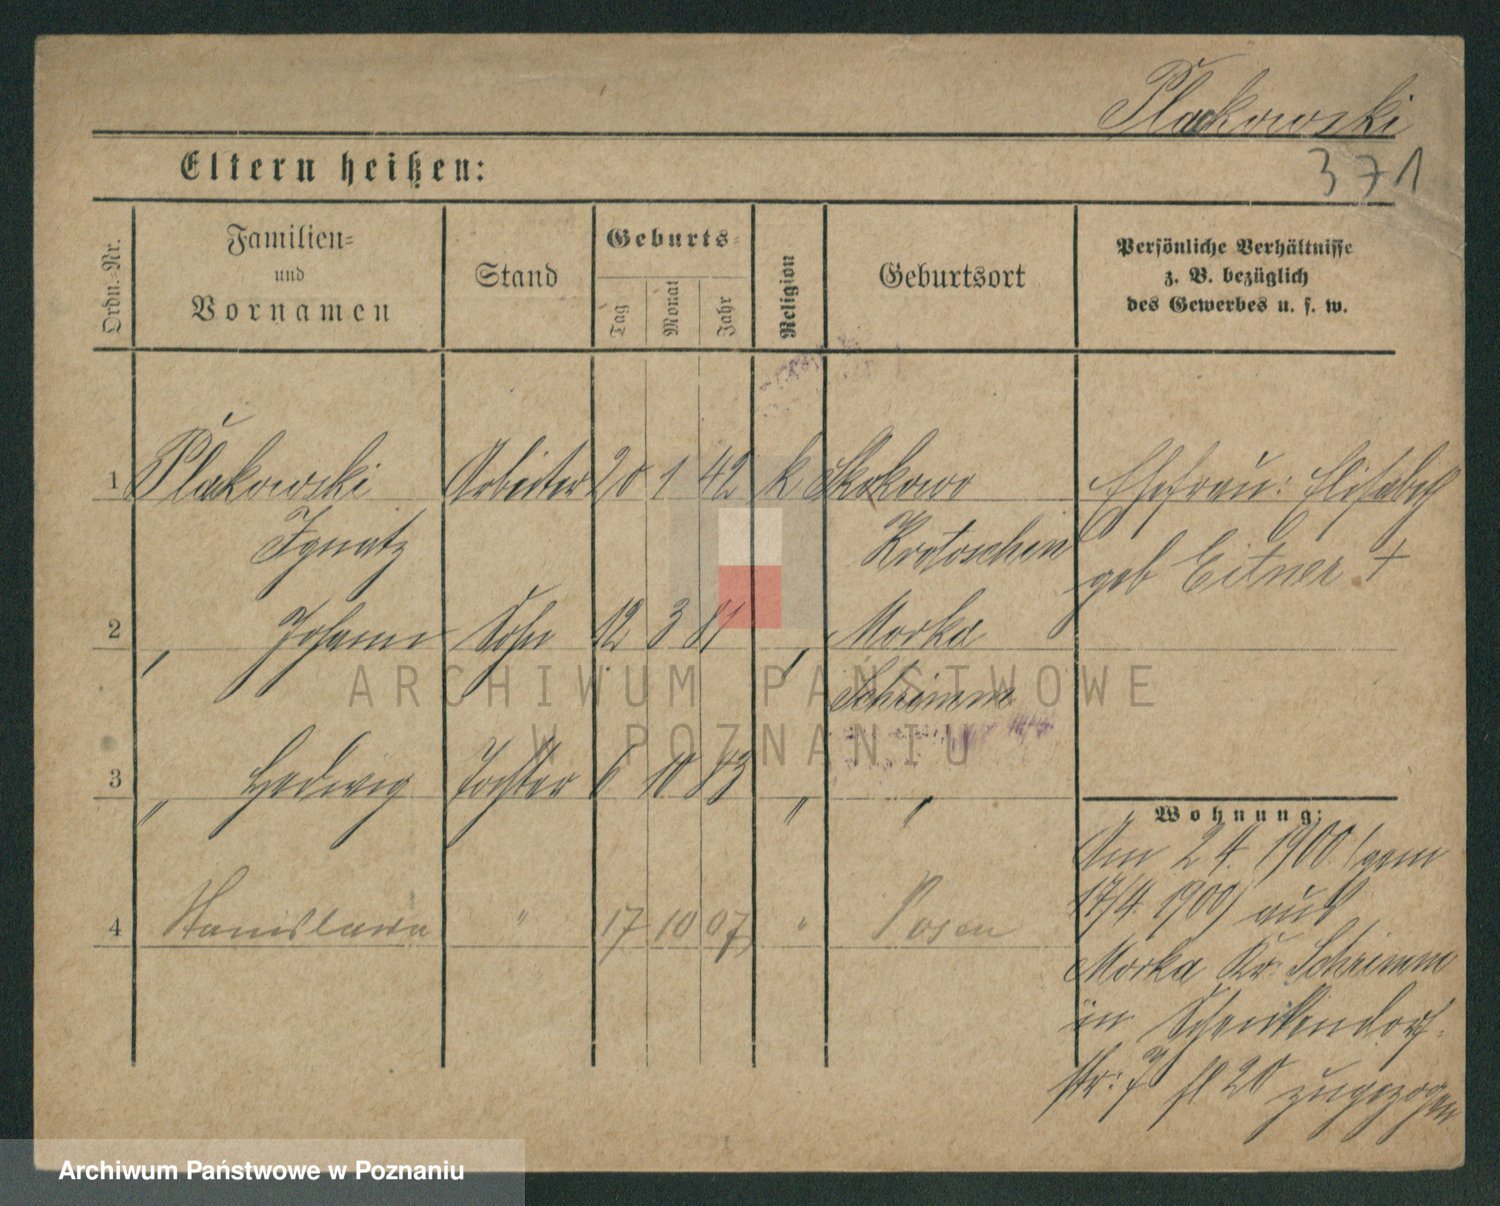 Plakowski
371
Eltern heißen:
Ordn.-Nr.
Familien-
und
Vornamen
Stand
Geburts-
Tag
Monat
Jahr
Religion
Geburtsort
Persönliche Verhältnisse
z. B. bezüglich
des Gewerbes u. s. w.
1 Plakowski Arbeiter 20 1 42 k Skokowo Ehefrau: Elisabeth
Ignatz Krotoschin geb Eitner +
2 " Johann Sohn 12 3 81 " Morka
Schrimm
3 " Hedwig Tochter 6 10 83 " "
4 Stanislawa " 17 10 07 " Posen
Wohnung:
Am 2.4. 1900 (gem
17/4. 1900) aus
Morka Kr. Schrimm
in Schenkendorf-
str: 7 II 20 zugezogen
ARCHIWUM PAŃSTWOWE
W POZNANIU
Archiwum Państwowe w Poznaniu